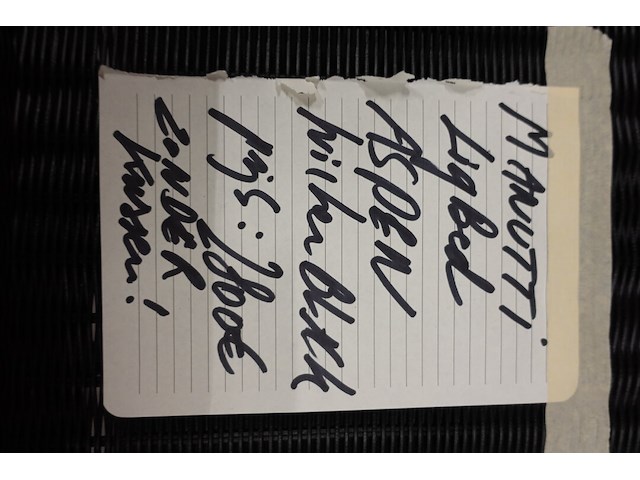 MANUTTI
LigBed
ASPEN
Wicker Black
Prijs:
ZONDER
Kussen!